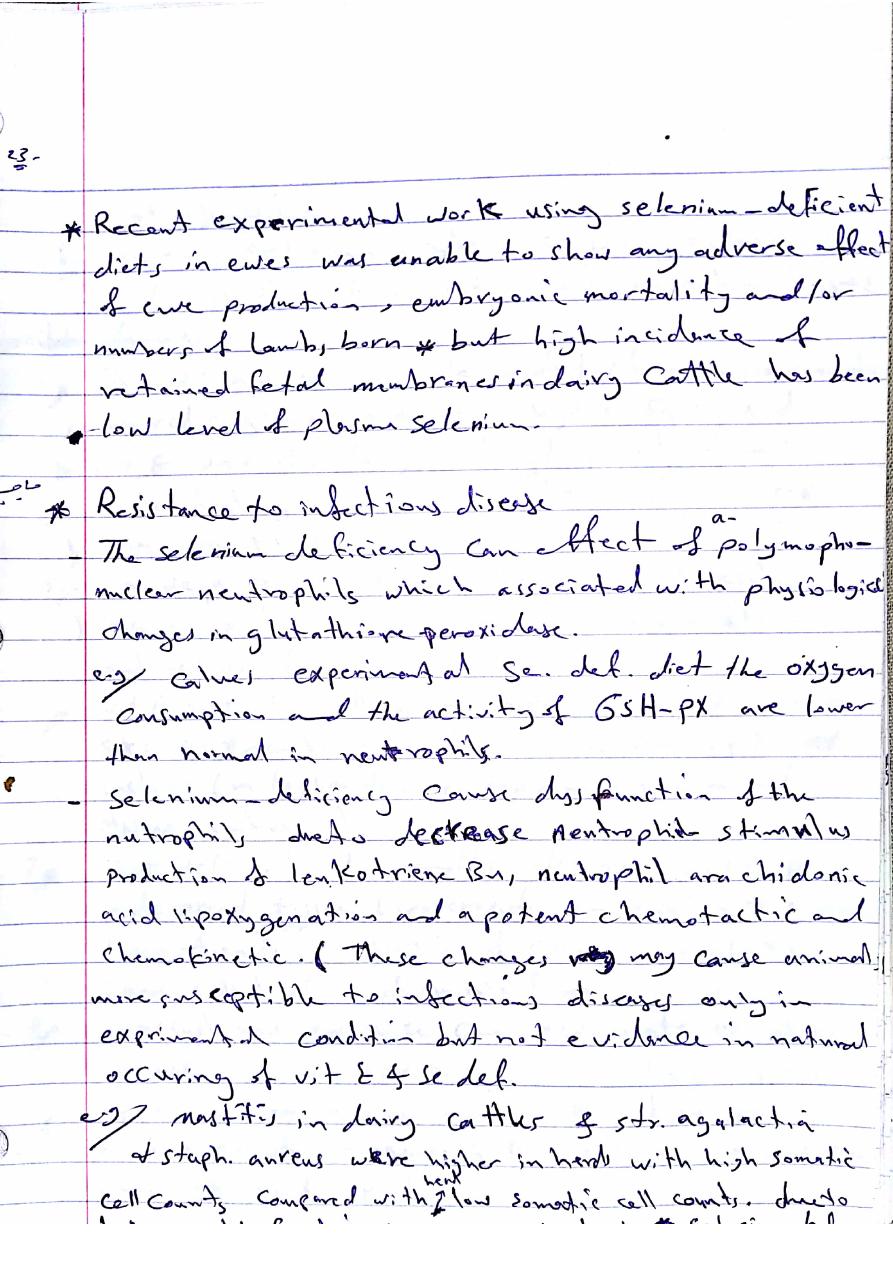 23-
* Recent experimental work using selenium-deficient
diets in ewes was unable to show any adverse effect
of ewe production, embryonic mortality and/or
numbers of lambs born * but high incidence of
retained fetal membranes in dairy Cattle has been
-low level of plasma selenium.
* Resistance to infectious disease
a-
- The selenium deficiency can effect of polymopho-
nuclear neutrophils which associated with physiological
changes in glutathione peroxidase.
e.g/ Calves experimental Se. def. diet the oxygen
Consumption and the activity of GSH-PX are lower
than normal in neutrophils.
- Selenium-deficiency Cause dysfunction of the
nutrophils due to decrease neutrophil stimulus
production of leukotriene B4, neutrophil arachidonic
acid lipoxygenation and a potent chemotactic and
Chemokinetic. ( These changes may cause animals
more susceptible to infectious diseases only in
exprimental condition but not evidence in natural
occuring of vit E & se def.
e.g/ mastitis in dairy cattles & str. agalactia
& staph. aureus were higher in herds with high somatic
cell counts compared with low somatic cell counts. due to